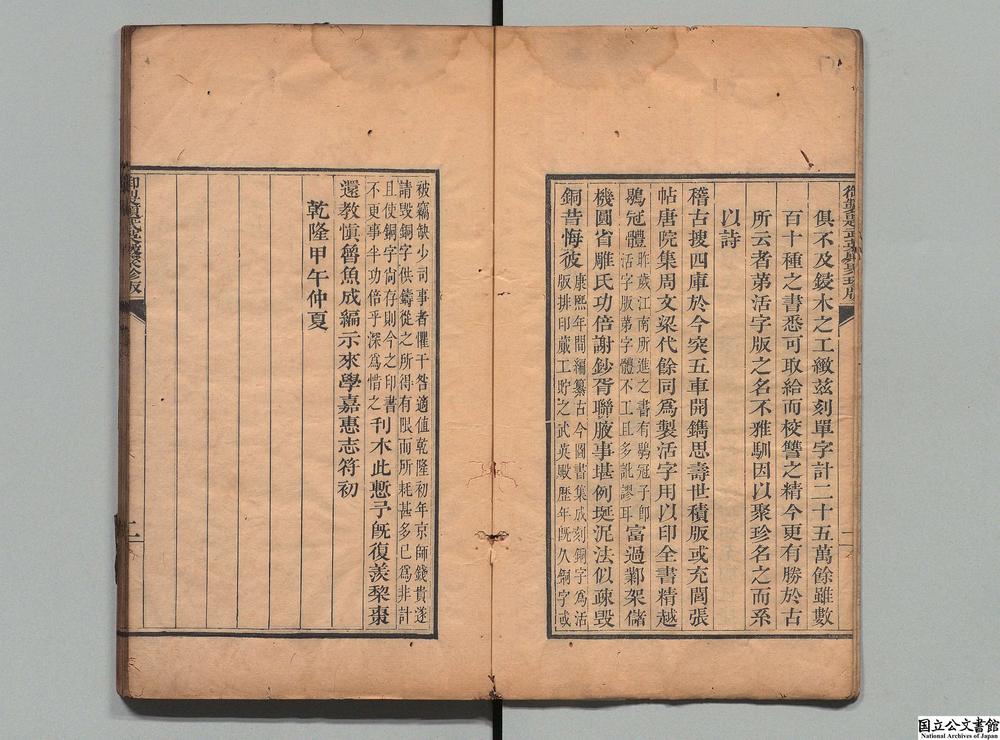 俱不及鋟木之工緻茲刻單字計二十五萬餘雖數
百十種之書悉可取給而校讐之精今更有勝於古
所云者第活字版之名不雅馴因以聚珍名之而系
以詩
稽古搜四庫於今突五車開鐫思壽世積版或充閭張
帖唐院集周文梁代餘同爲製活字用以印全書精越
鶡冠體昨歲江南所進之書有鶡冠子卽
活字版第字體不工且多訛謬耳富過鄴架儲
機圓省雕氏功倍謝鈔胥聯腋事堪例埏泥法似疎毁
銅昔悔彼康熙年間編纂古今圖書集成刻銅字爲活
版排印蕆工貯之武英殿歷年旣久銅字或
二
被竊缺少司事者懼干咎適值乾隆初年京師錢貴遂
請毀銅字供鑄從之所得有限而所耗甚多已爲非計
且使銅字尚存則今之印書
不更事半功倍乎深爲惜之刊木此慙予旣復羨梨棗
還教愼魯魚成編示來學嘉惠志符初
乾隆甲午仲夏
二
国立公文書館
National Archives of Japan